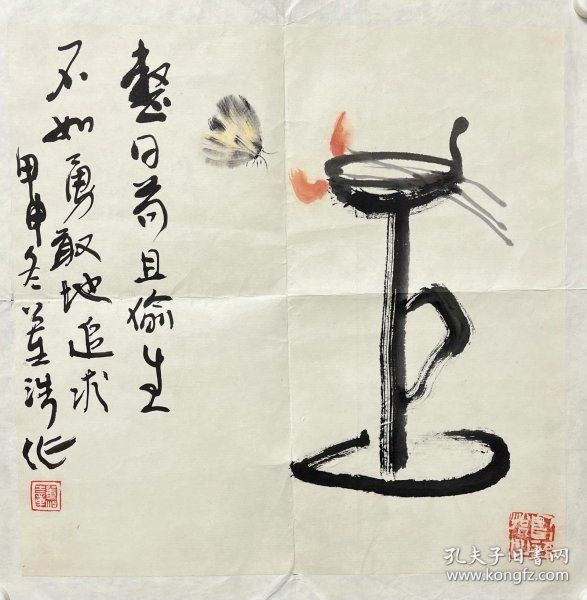 整日苟且偷生
不如勇敢地追求
甲申冬董浩作
孔夫子旧书网
www.kongfz.com